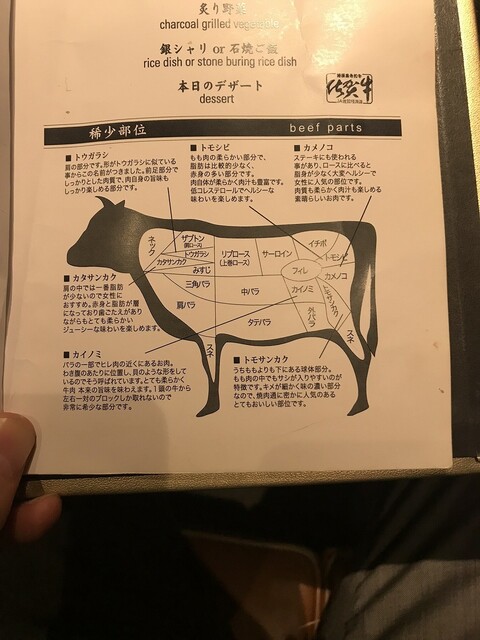 炙り野菜
charcoal grilled vegetable
銀シャリ or 石焼ご飯
rice dish or stone buring rice dish
本日のデザート
dessert
佐賀牛
稀少部位 beef parts
■ トウガラシ
肩の部分です。形がトウガラシに似ている
事からこの名前がつきました。前足部分で
しっかりとした肉質で、肉自身の旨味も
しっかり楽しめる部分です。
■ トモシビ
もも肉の柔らかい部分で、
脂肪は比較的少なく、
赤身の多い部分です。
肉自体が柔らかく肉汁も豊富です。
低コレステロールでヘルシーな
味わいを楽しめます。
■ カメノコ
ステーキにも使われる
事があり、ロースに比べると
脂身が少なく大変ヘルシーで
女性に人気の部位です。
肉質も柔らかく肉汁も楽しめる
素晴らしいお肉です。
■ カタサンカク
肩の中では一番脂肪
が少ないので女性に
おすすめ。赤身と脂肪が層
になっており歯ごたえがあり
ながらもとても柔らかい
ジューシーな味わいを楽しめます。
■ カイノミ
バラの一部でヒレ肉の近くにあるお肉。
わき腹のあたりに位置し、貝のような形をして
いるのでそう呼ばれています。とても柔らかく
牛肉 本来の旨味を味わえます。1頭の牛から
左右一対のブロックしか取れないので
非常に希少な部分です。
■ トモサンカク
うちももよりも下にある球体部分。
もも肉の中でもサシが入りやすいのが
特徴です。キメが細かく味の濃い部分
なので、焼肉通に密かに人気のある
とてもおいしい部位です。
ネック
ザブトン
(肩ロース)
トウガラシ
カタサンカク
みすじ
三角バラ
肩バラ
リブロース
(上巻ロース)
サーロイン
イチボ
トモシビ
フィレ
カメノコ
中バラ
カイノミ
トモサンカク
外バラ
タテバラ
スネ
スネ